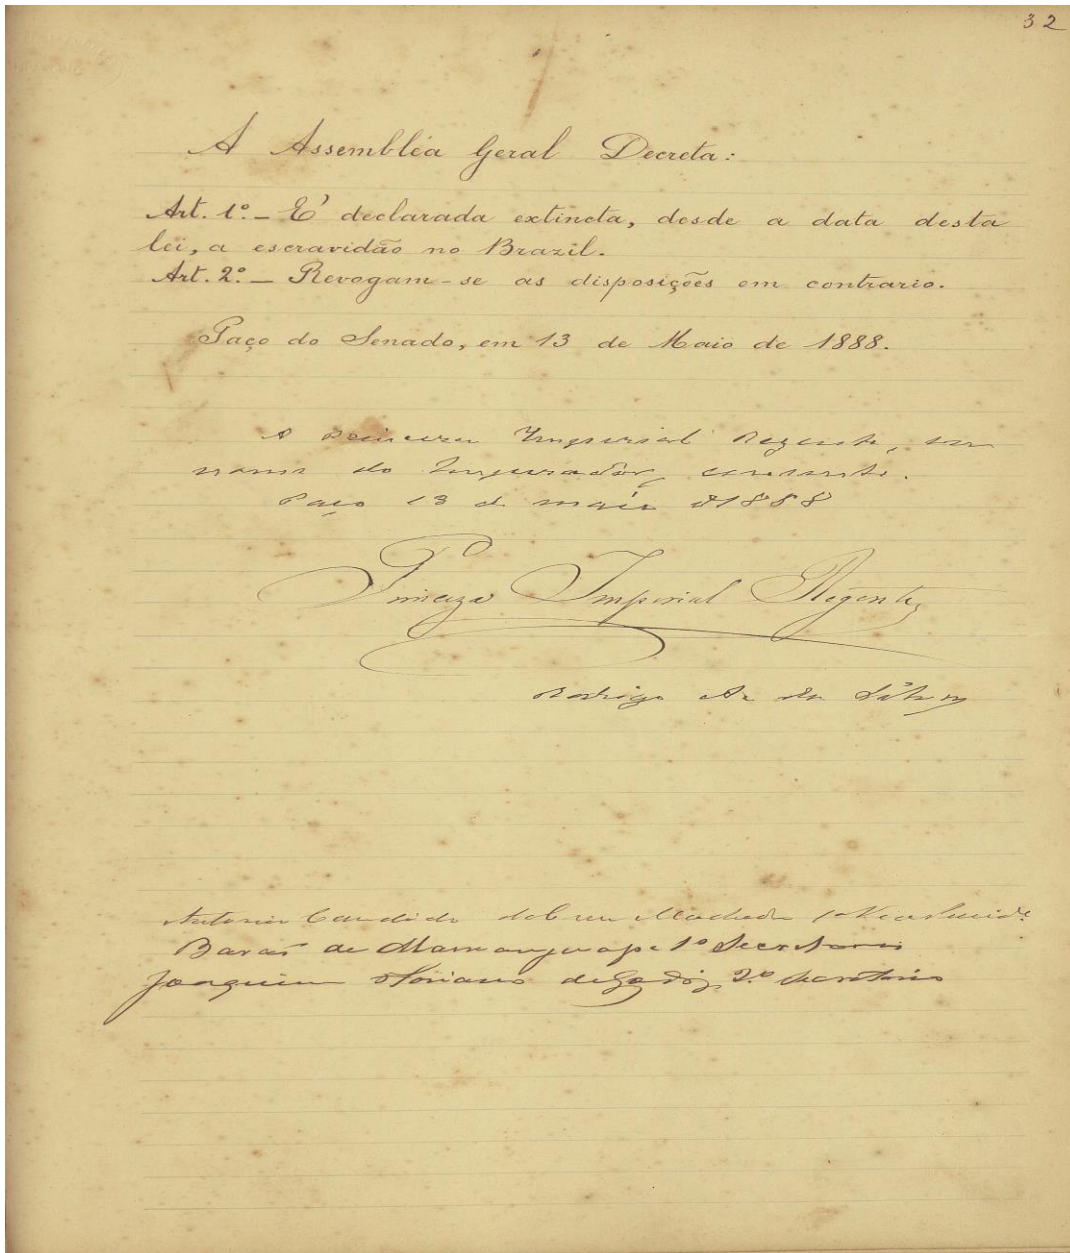 32
A Assembléa Geral Decreta:
Art. 1º. — E' declarada extincta, desde a data desta
lei, a escravidão no Brazil.
Art. 2º. — Revogam-se as disposições em contrario.
Paço do Senado, em 13 de Maio de 1888.
A Princeza Imperial Regente, em
nome do Imperador, consente.
Paço 13 de maio de 1888
Princeza Imperial Regente
Rodrigo A. da Silva
Antonio Candido da Cruz Machado 1º Vice Presidte
Barão de Mamanguape 1º Secretario
Joaquim Floriano de Godoy, 2.º Secretario